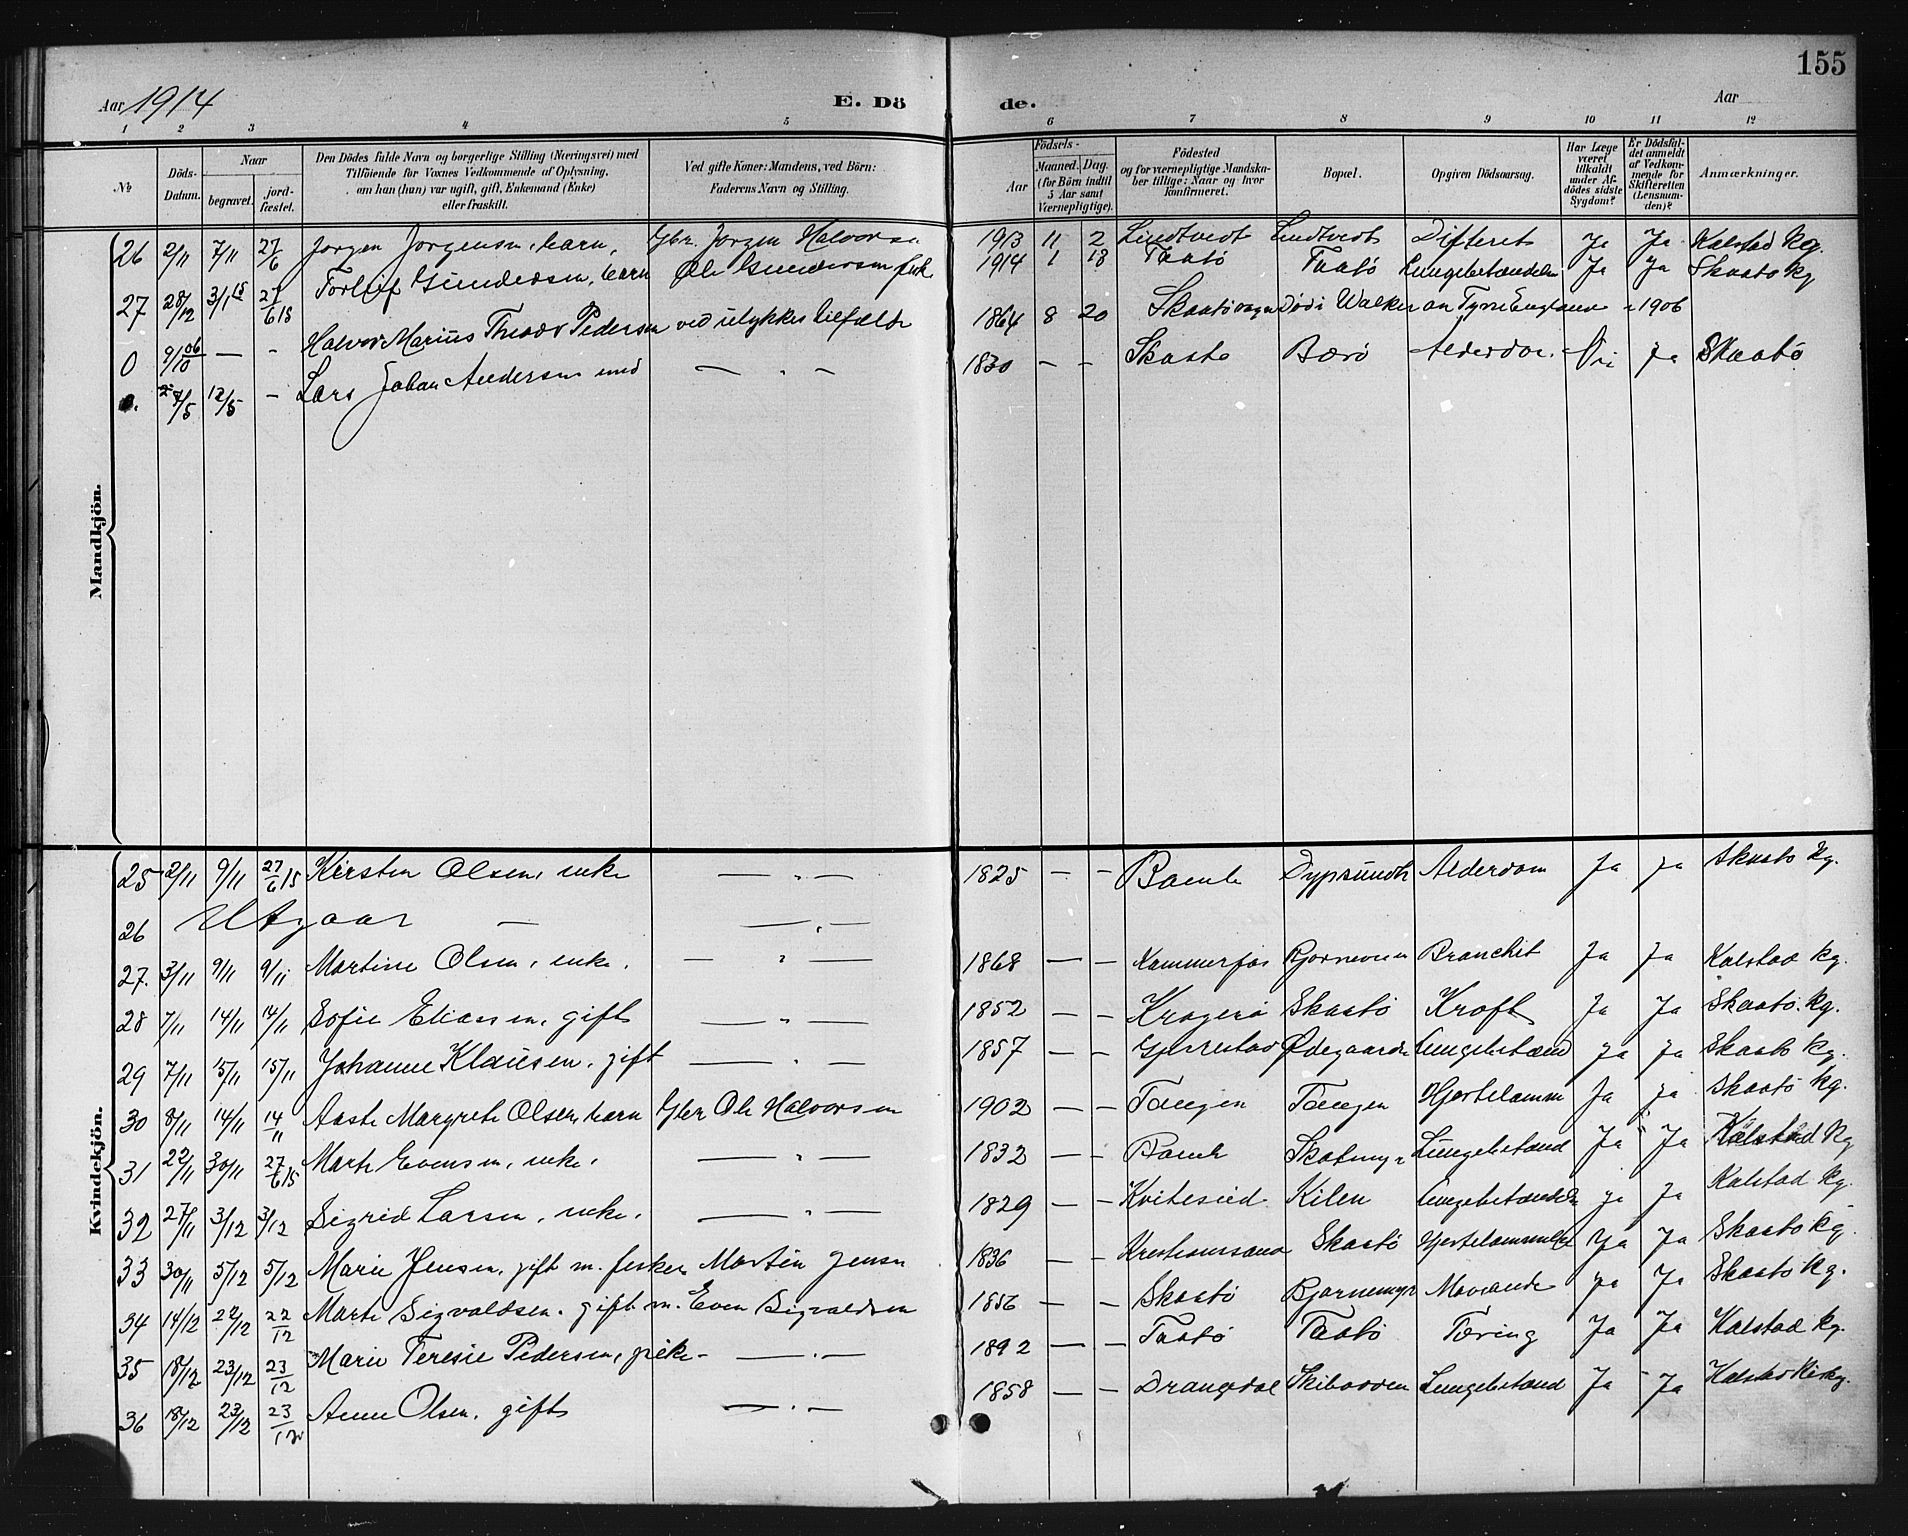 155
Aar 1914 E. Dö de. Aar
1 2 3 4 5 6 7 8 9 10 11 12
No
Döds-Datum.
Naar
begravet.
jord-fæstet.
Den Dödes fulde Navn og borgerlige Stilling (Næringsvei) med
Tilföiende for Voxnes Vedkommende af Oplysning,
om han (hun) var ugift, gift, Enkemand (Enke)
eller fraskilt.
Ved gifte Koner: Mandens, ved Börn:
Faderens Navn og Stilling.
Födsels-
Aar
Maaned. Dag.
(for Börn indtil
5 Aar samt
Værnepligtige).
Födested
og for værnepligtige Mandska-
ber tillige: Naar og hvor
konfirmeret.
Bopæl.
Opgiven Dödsaarsag.
Har Læge
været
tilkaldt
under Af-
dödes sidste
Sygdom?
Er Dödsfal-
det anmeldt
af Vedkom-
mende for
Skifteretten
(Lensman-
den)?
Anmærkninger.
Mandkjön.
26 2/11 7/11 27/6 Jorgen Jorgensen, barn, Gbr. Jorgen Halvorsen 1913 11 2 Lindtvedt Lindtvedt Difterit Ja Ja Kalstad kg.
27 28/12 3/1 15 27/6 15 Torleif Gundersen, barn Ole Gundersen fisk. 1914 1 13 Taatö Taatö Lungebetændelse Ja Ja Skaatö kg
0 9/10 06 — - Halvor Marius Theodor Pedersen ved ulykkestilfælde 1864 8 20 Skaatö Död i Walker on Tyne England 1906
0. 7/5 12/5 — Lars Johan Andersen und — " — 1830 — - Skaatö Bærö Alderdom. Nei Ja Skaatö
Kvindekjön.
25 2/11 9/11 27/6 15 Kirsten Olsen, enke — " — 1825 — — Bamble Dypsund Alderdom Ja Ja Skaatö kg.
26 Utgaar — — " —
27. 3/11 9/11 9/11 Martine Olsen, enke. — " — 1868 — — Kammerfos Bronchit Ja Ja Kalstad kg.
28 7/11 14/11 14/11 Sofie Eliassen, gift — " — 1852 — — Kragerö Skaatö Kræft Ja Ja Skaatö. kg.
29 7/11 15/11 15/11 Johanne Klausen, gift — " — 1857 — — Gjerrestad Ødegaarden Lungebetænd Ja Ja Skaatö kg.
30 8/11 14/11 14/11 Aaste Margrete Olsen, barn Gbr Ole Halvorsen 1902 — — Tangen Tangen Hjertelamm Ja Ja Skaatö kg.
31 22/11 30/11 27/6 15 Marte Evensen, enke. — " — 1832 — — Bamble Lungebetænd Ja Ja Kalstad kg
32 27/11 3/12 3/12 Sigrid Larsen, enke. — " — 1829 — — Kviteseid Kilen Lungebetændelse Ja Ja Kalstad kg.
33 30/11 5/12 5/12 Marie Jensen, gift m. fisker Martin Jensen 1836 — Kristianssand Skaatö Hjertelammelse Ja Ja Skaatö kg.
34 14/12 22/12 22/12 Marte Sigvaldsen. gift m. Even Sigvaldsen 1856 — — Skaatö Bjørnemyr Ja Ja Skaatö kg.
35 18/12 23/12 23/12 Marie Teresie Pedersen, pike — " — 1892 — — Taatö Taatö Tæring Ja Ja Kalstad kg.
36 18/12 23/12 23/12 Anne Olsen, gift — " — 1858 — — Drangedal Lungebetænd Ja Ja Kalstad